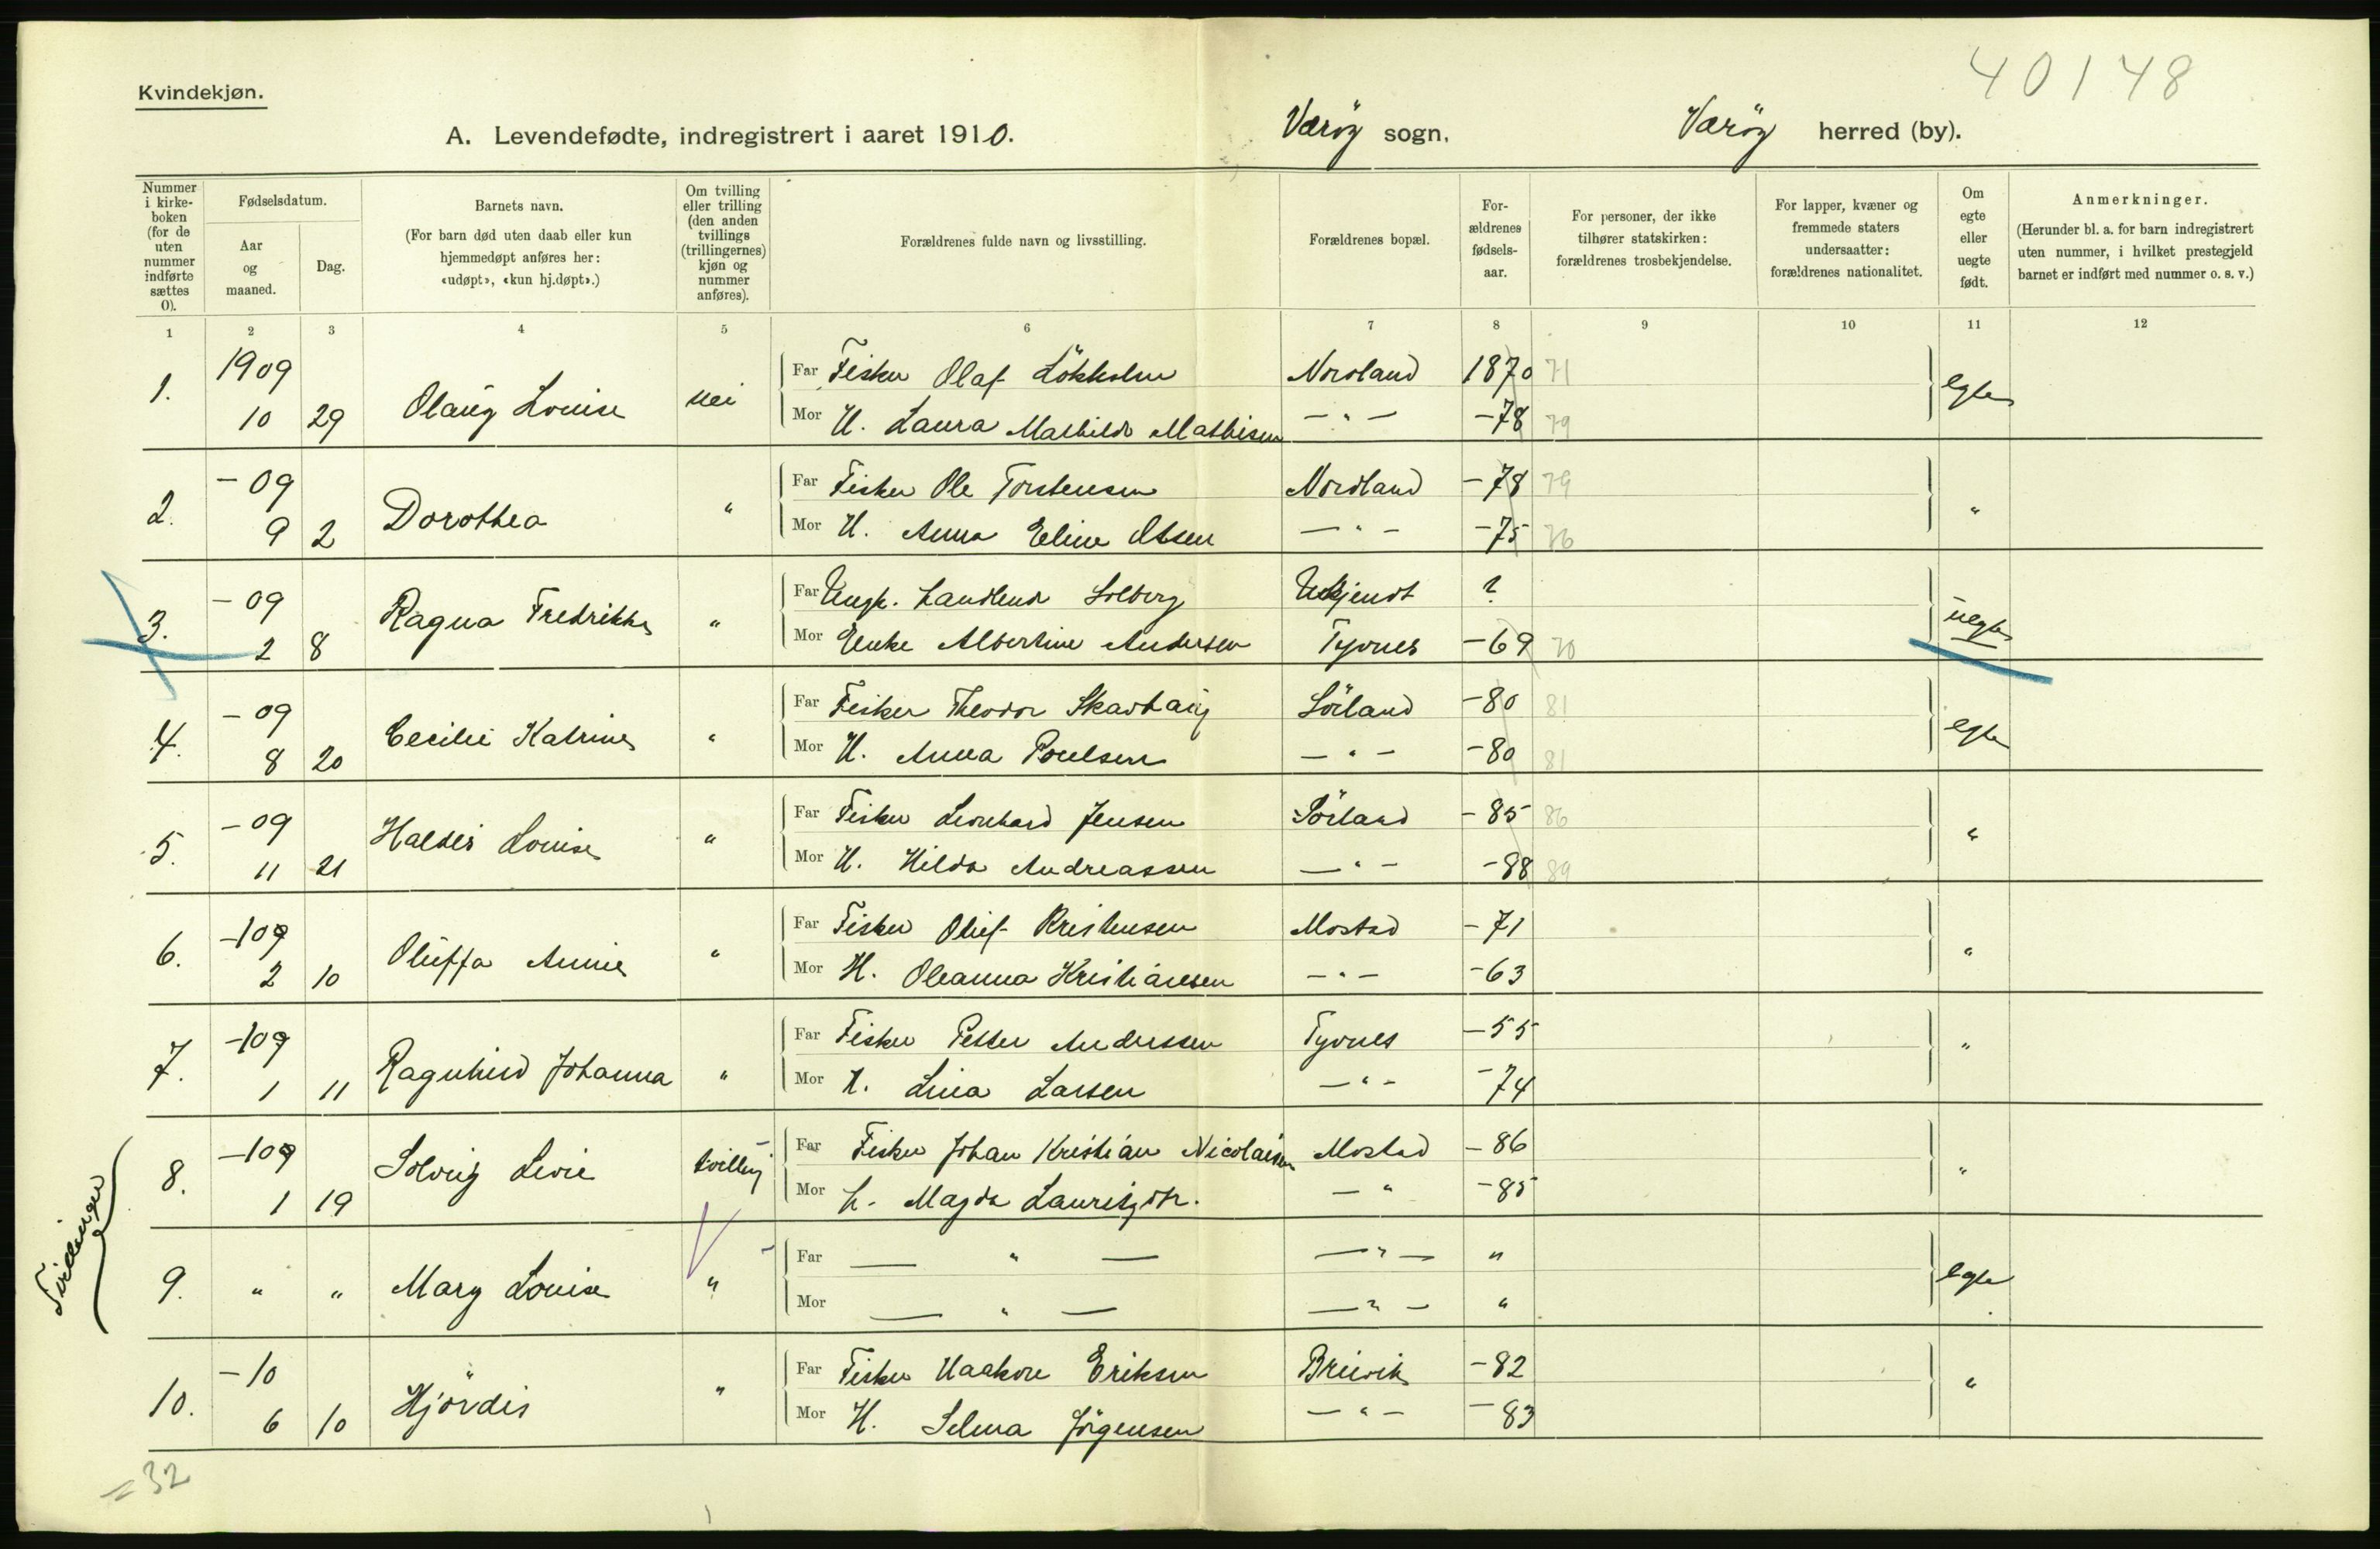 40148
Kvindekjøn.
A. Levendefødte, indregistrert i aaret 1910. Værøy sogn. Værøy herred (by).
Nummer i kirke-boken (for de uten nummer indførte sættes 0).
Fødselsdatum.
Aar og maaned.
Dag.
Barnets navn.
(For barn død uten daab eller kun hjemmedøpt anføres her: «udøpt», «kun hj.døpt».)
Om tvilling eller trilling (den anden tvillings (trillingernes) kjøn og nummer anføres).
Forældrenes fulde navn og livsstilling.
Forældrenes bopæl.
For-ældrenes fødsels-aar.
For personer, der ikke tilhører statskirken: forældrenes trosbekjendelse.
For lapper, kvæner og fremmede staters undersaatter: forældrenes nationalitet.
Om egte eller uegte født.
Anmerkninger.
(Herunder bl. a. for barn indregistrert uten nummer, i hvilket prestegjeld barnet er indført med nummer o. s. v.)
1 2 3 4 5 6 7 8 9 10 11 12
1. 1909 10 29 Olaug Louise nei
Far Fisker Olaf Lökholm Nordland 1870 71 egte
Mor H. Laura Mathilde Mathisen —"— -78 79
2. -09 9 2 Dorothea "
Far Fisker Ole Torstensen Nordland -78 79 "
Mor H. Anna Eline Olsen —"— -75 76
3. -09 2 8 Ragna Fredrikke "
Far Ungk. Solberg Ukjendt ? uegte
Mor Enke Albertine Andersen Tyvnes -69 70
4. -09 8 20 Cecilie Katrine "
Far Fisker Theodor Skarhaug Sörland -80 81 egte
Mor H. Anna Poulsen —"— -80 81
5. -09 11 21 Haldis Louise "
Far Fisker Leonhard Jensen Sörland -85 86 "
Mor H. Hilda Andreassen —"— -88 89
6. -109 2 10 Oluffa Annie "
Far Fisker Oluf Kristensen Mostad -71 "
Mor H. Oleanna Kristiansen —"— -63
7. -109 1 11 Ragnhild Johanna "
Far Fisker Petter Anderssen Tyvnes -55 "
Mor H. Lina Larsen —"— -74
8. -109 1 19 Solveig Livie tvilling
Far Fisker Johan Kristian Nicolaisen Mostad -86 "
Mor H. Magda Lauritzdtr. —" -85
Tvillinger
9. " " Mary Louise "
Far — " — —"— " egte
Mor — " — —"— "
10. -10 6 10 Hjördis "
Far Fisker Haakon Eriksen Breivik -82 "
Mor H. Selma Jörgensen —"— -83
= 32